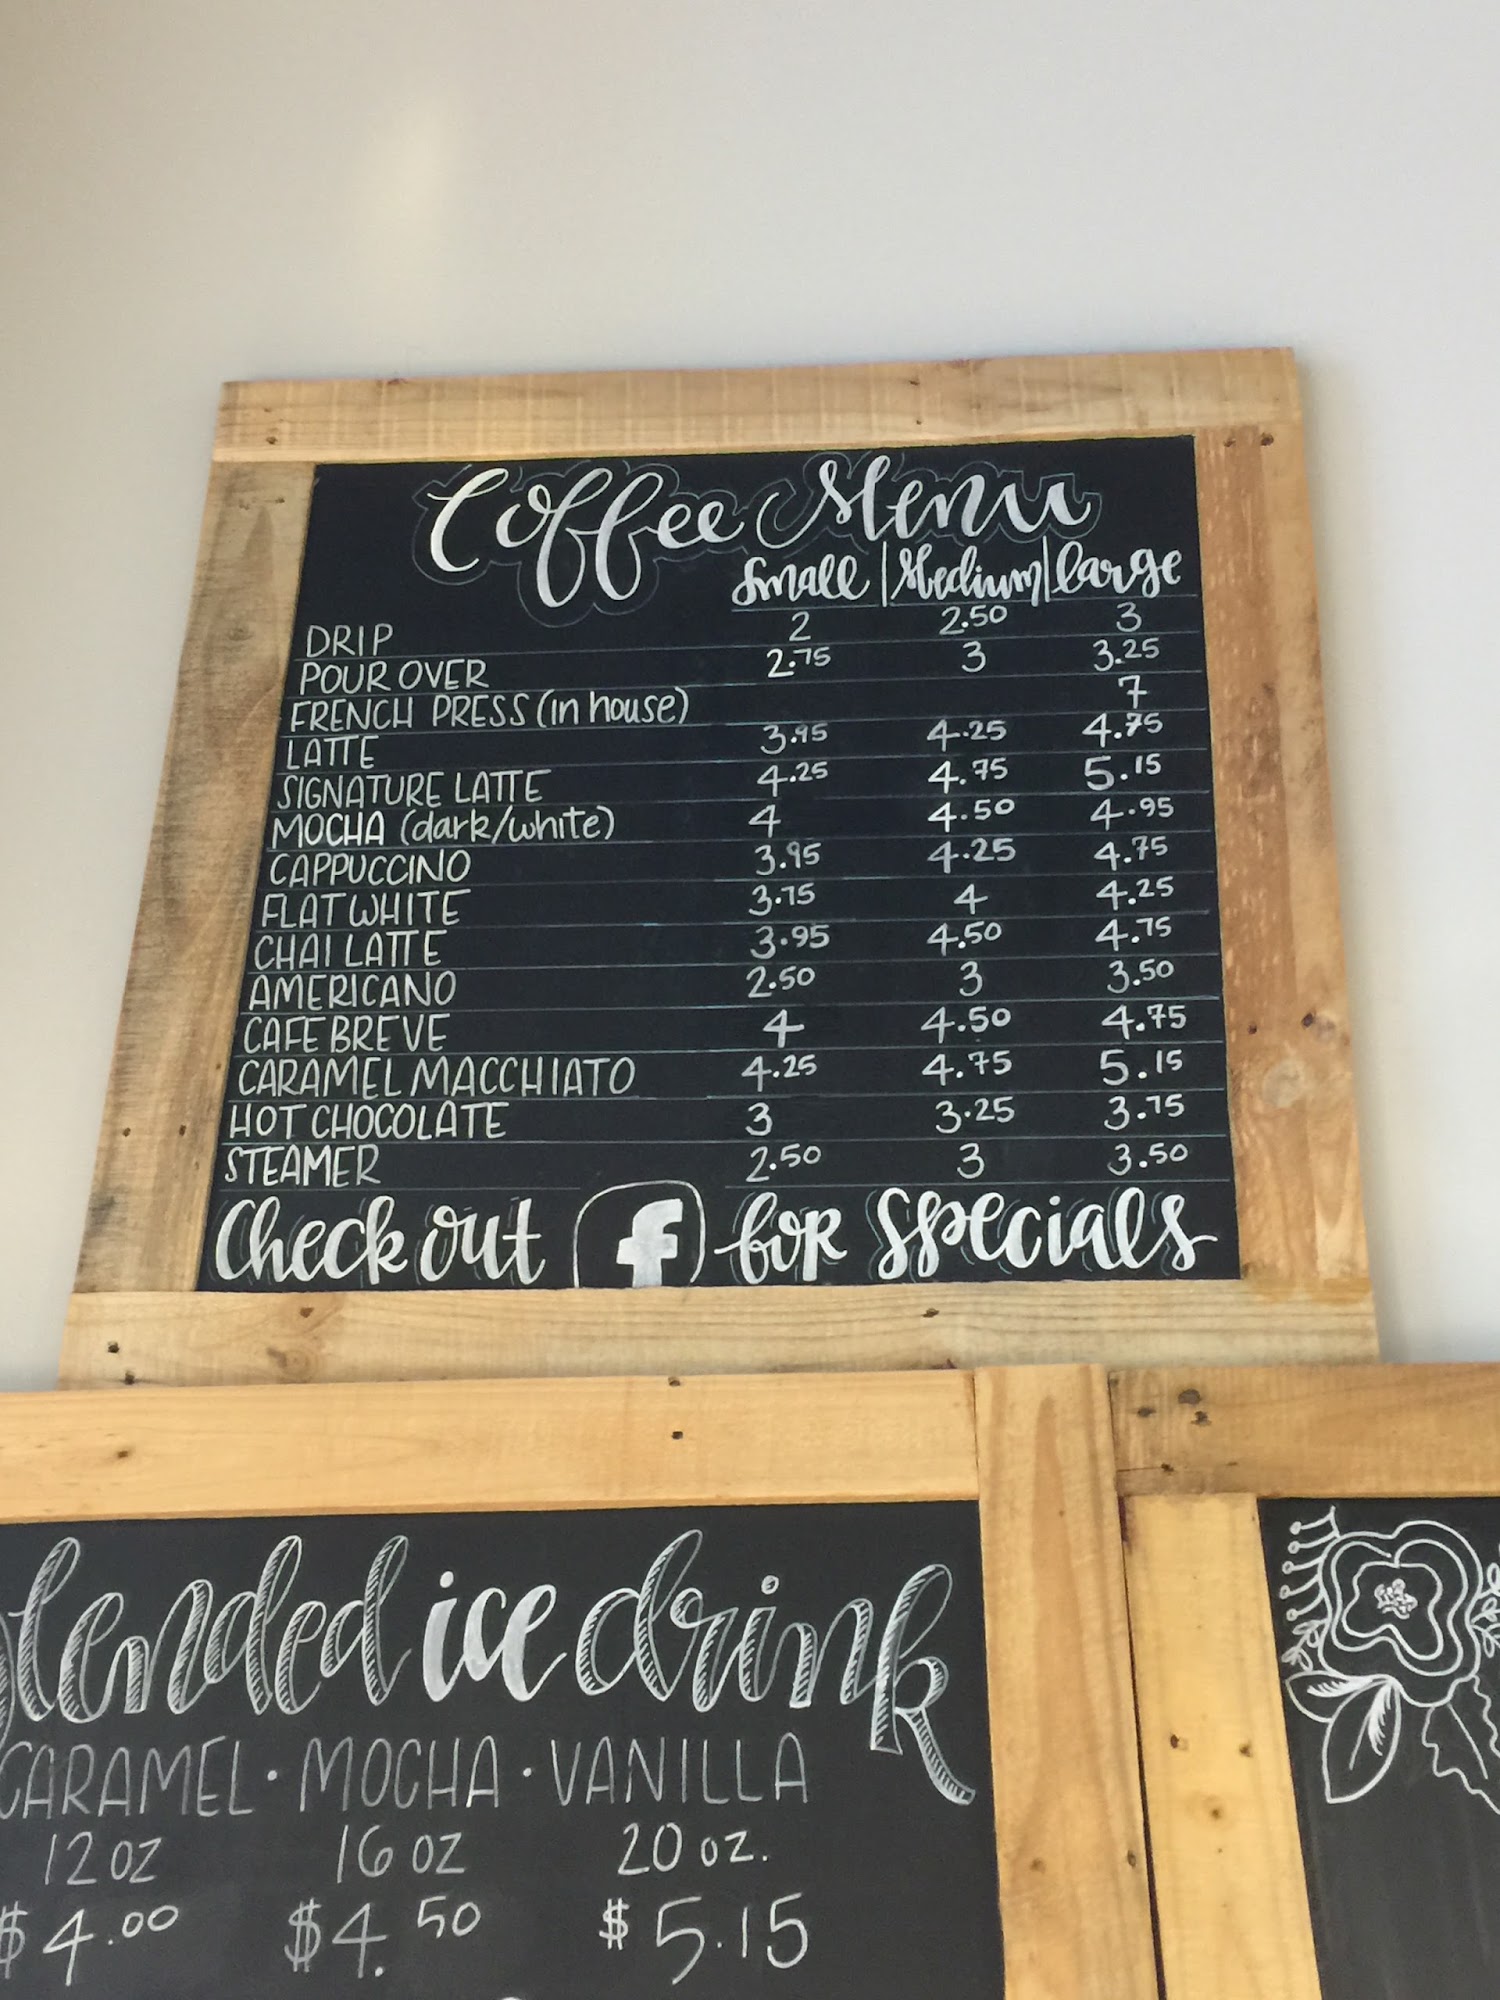 Coffee Menu
Small | Medium | Large
DRIP 2 2.50 3
POUR OVER 2.75 3 3.25
FRENCH PRESS (in house) 7
LATTE 3.95 4.25 4.75
SIGNATURE LATTE 4.25 4.75 5.15
MOCHA (dark/white) 4 4.50 4.95
CAPPUCCINO 3.95 4.25 4.75
FLAT WHITE 3.75 4 4.25
CHAI LATTE 3.95 4.50 4.75
AMERICANO 2.50 3 3.50
CAFE BREVE 4 4.50 4.75
CARAMEL MACCHIATO 4.25 4.75 5.15
HOT CHOCOLATE 3 3.25 3.75
STEAMER 2.50 3 3.50
Check out f for Specials
blended ice drink
CARAMEL · MOCHA · VANILLA
12 oz 16 oz 20 oz.
$4.00 $4.50 $5.15